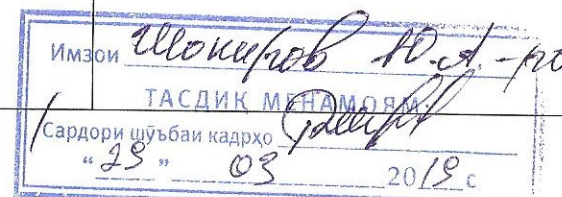 Имзои Шокиров Ю.А.-ро
ТАСДИҚ МЕНАМОЯМ:
Сардори шуъбаи кадрҳо
“29” 03 2019 с